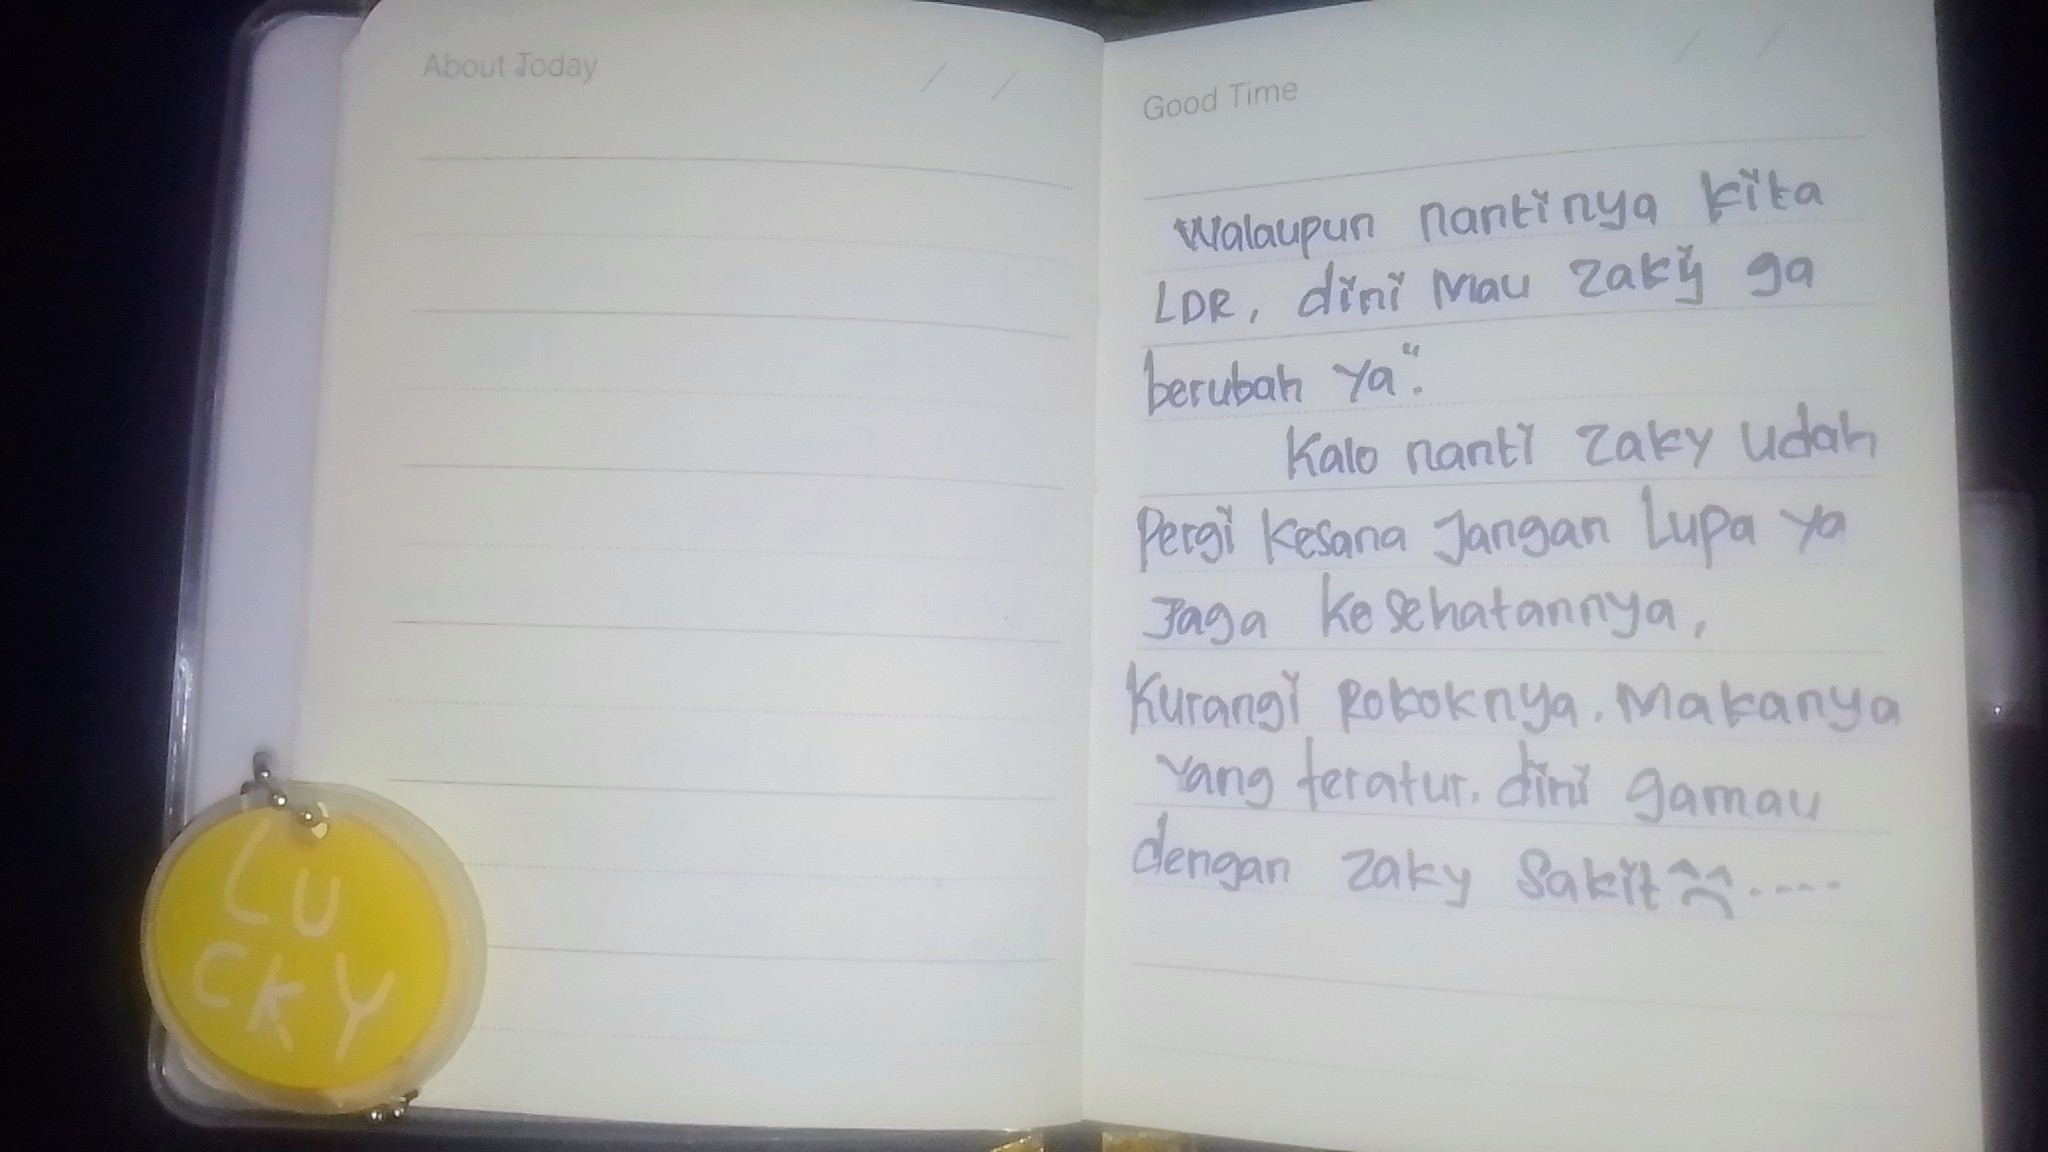 About Today / /
Good Time / /
Walaupun nantinya kita
LDR, dini mau zaky ga
berubah ya".
Kalo nanti zaky udah
Pergi kesana Jangan Lupa ya
Jaga kesehatannya,
Kurangi Rokoknya. Makanya
Yang teratur. dini gamau
dengan zaky Sakit ....
LU
CKY